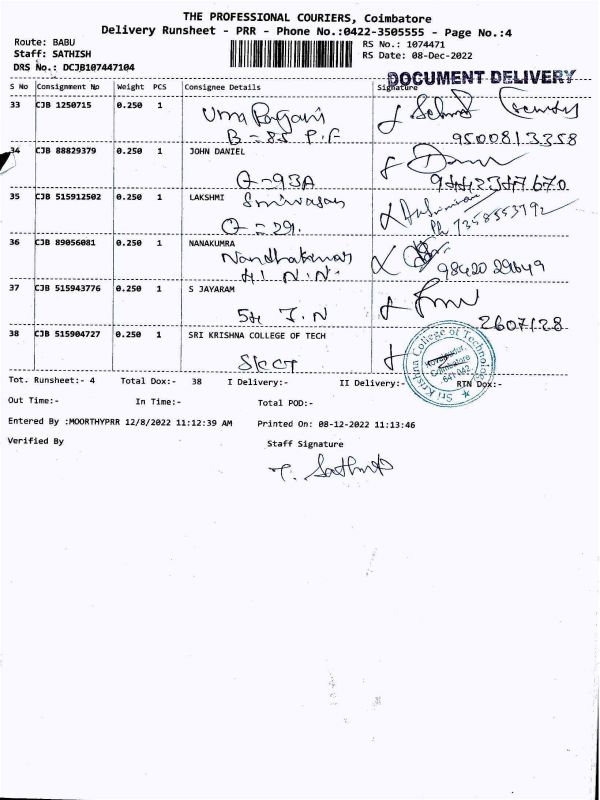 THE PROFESSIONAL COURIERS, Coimbatore
Delivery Runsheet - PRR - Phone No.:0422-3505555 - Page No.:4
Route: BABU
Staff: SATHISH
DRS No.: DCJB107447104
RS No.: 1074471
RS Date: 08-Dec-2022
DOCUMENT DELIVERY
S No Consignment No Weight PCS Consignee Details Signature
33 CJB 1250715 0.250 1 Uma
B = 85 P.F 9500813358
34 CJB 88829379 0.250 1 JOHN DANIEL
Q-93A
35 CJB 515912502 0.250 1 LAKSHMI Srinivasan
Q = 29. Ph 7358553792
36 CJB 89056081 0.250 1 NANAKUMRA
Nandhakumar
41 N.N. 98420 29649
37 CJB 515943776 0.250 1 S JAYARAM
54 J.N 2607128
38 CJB 515904727 0.250 1 SRI KRISHNA COLLEGE OF TECH
SKCT
Sri Krishna College of Technology
Kovaipudur,
Coimbatore
641 042
Tot. Runsheet:- 4 Total Dox:- 38 I Delivery:- II Delivery:- RTN Dox:-
Out Time:- In Time:- Total POD:-
Entered By :MOORTHYPRR 12/8/2022 11:12:39 AM Printed On: 08-12-2022 11:13:46
Verified By Staff Signature